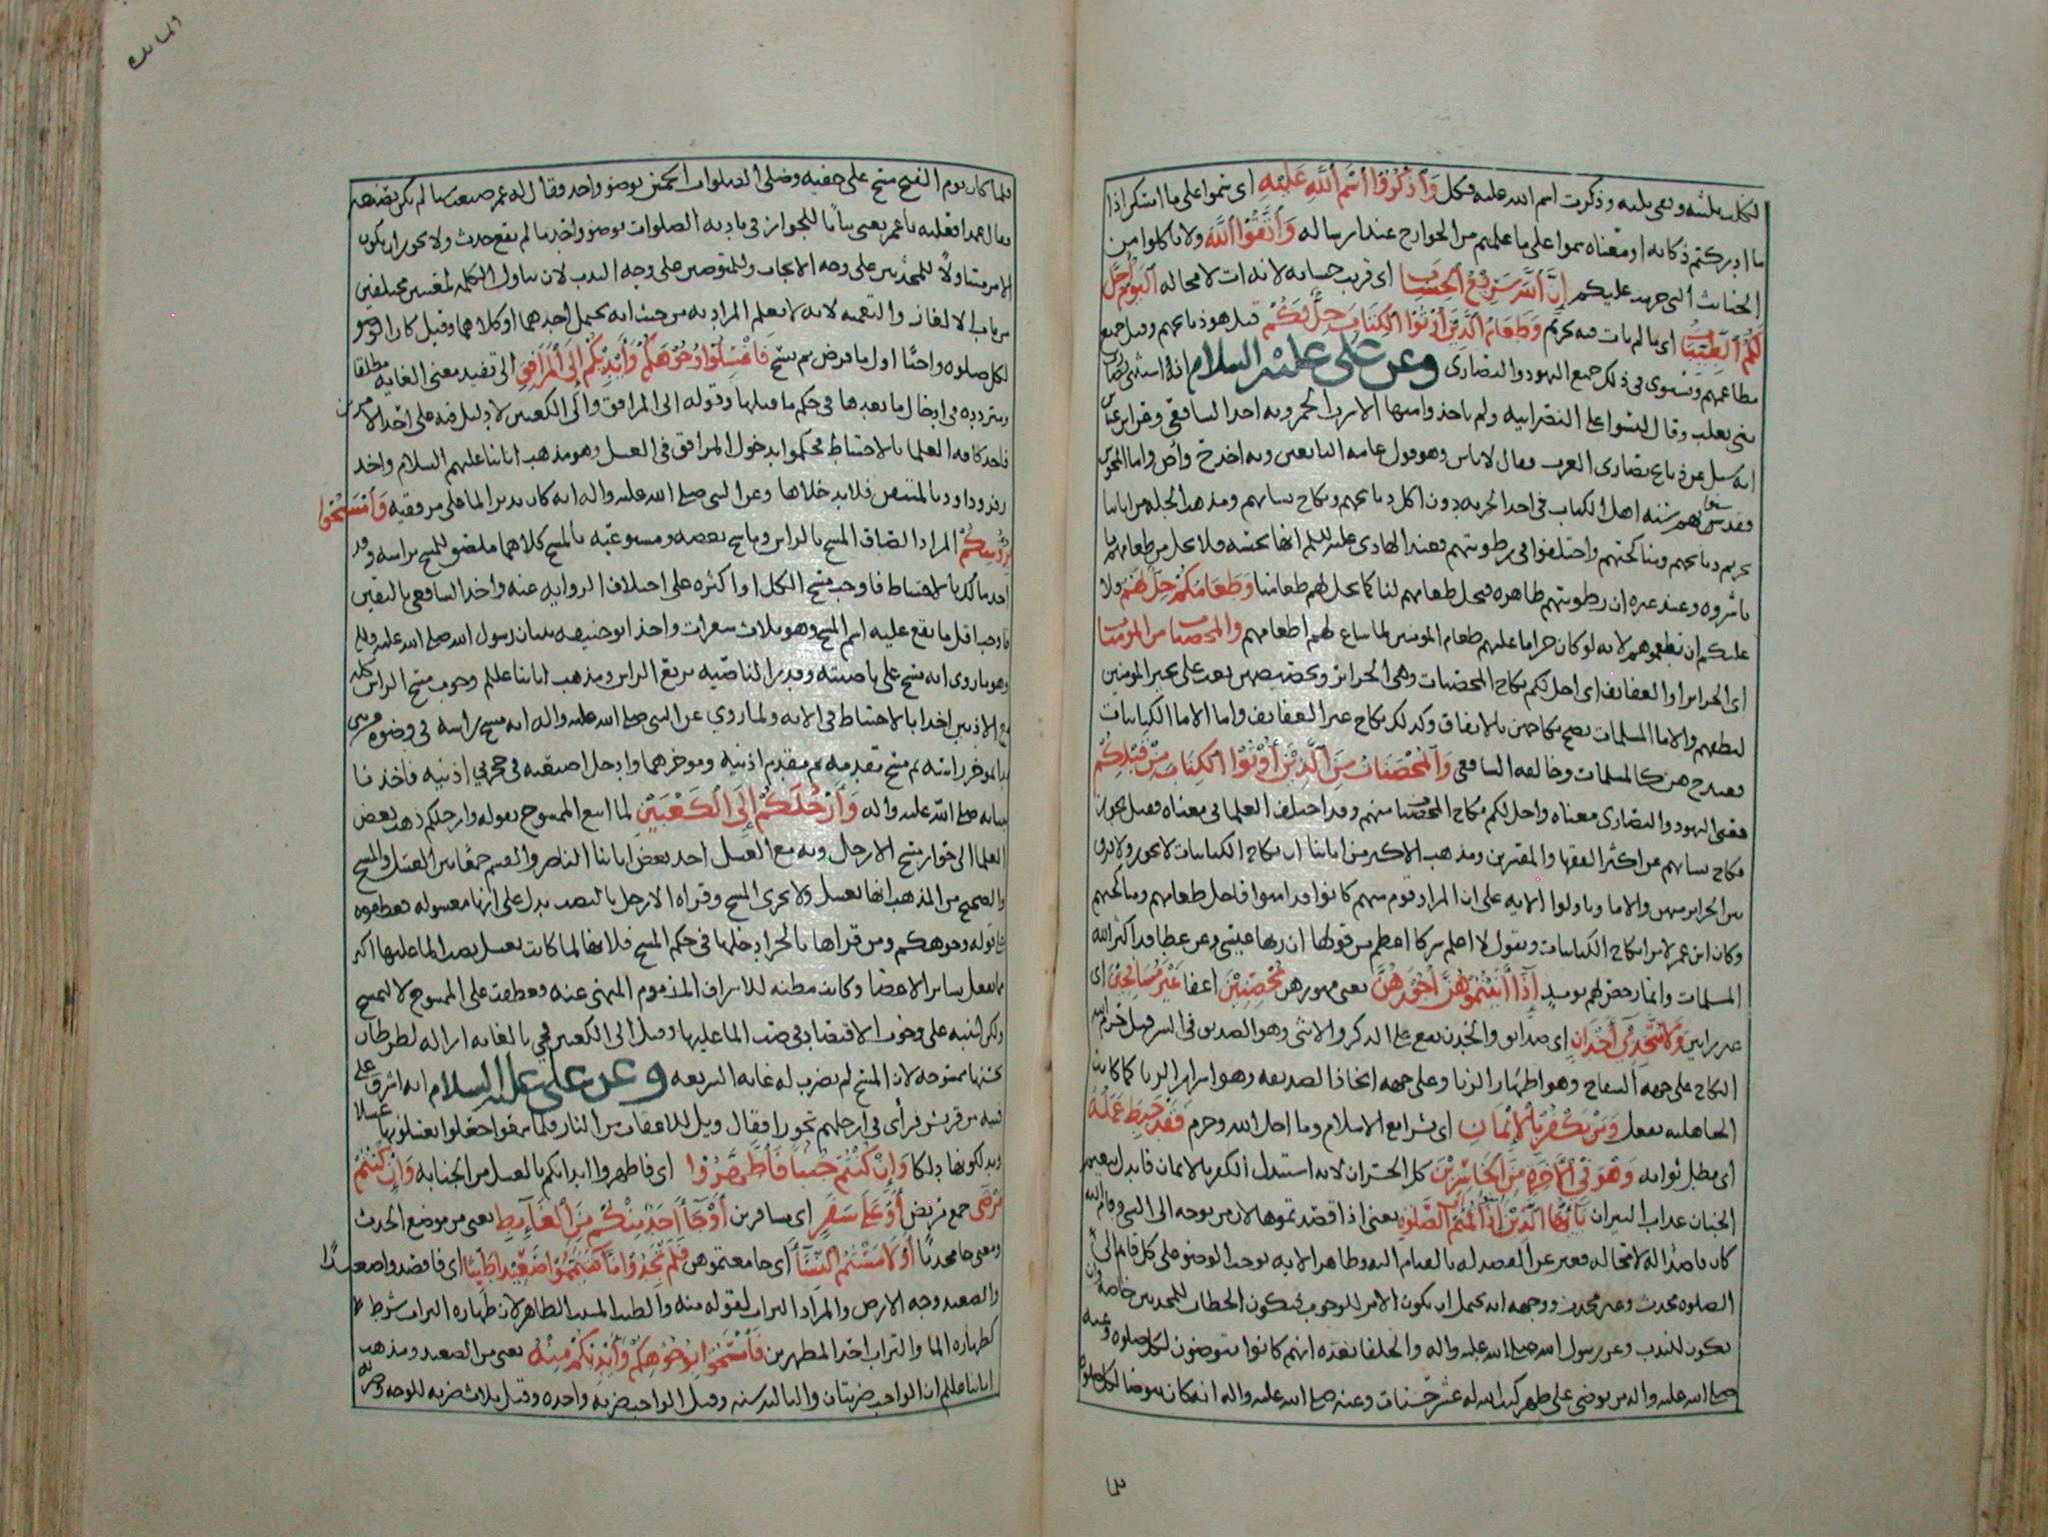 وَاذْكُرُوا اسْمَ اللَّهِ عَلَيْهِ اى سموا على ما امسكن اذا
ما ادركتم ذكاته او معناه سموا على ما علمتم من الجوارح عند ارساله وَاتَّقُوا اللَّهَ ولا تاكلوا من
الخبائث التى حرمت عليكم إِنَّ اللَّهَ سَرِيعُ الْحِسَابِ اى قريب حسابه لانه ات لا محاله الْيَوْمَ أُحِلَّ
لَكُمُ الطَّيِّبَاتُ اى ما لم يات فيه تحريم وَطَعَامُ الَّذِينَ أُوتُوا الْكِتَابَ حِلٌّ لَكُمْ قيل هو ذبائحهم وقيل جميع
مطاعمهم ويستوى فى ذلك جميع اليهود والنصارى وعن على عليه السلام انه استثنى نصارى
بنى تغلب وقال ليسوا على النصرانيه ولم ياخذوا منها الا شرب الخمر وبه اخذ الشافعى وعن ابن عباس
انه سئل عن ذبائح نصارى العرب فقال لا باس وهو قول عامه التابعين وبه اخذ ح
اهل الكتاب فى اخذ الجزيه دون اكل ذبائحهم ونكاح نسائهم ومذهب
تحريم ذبائحهم ومناكحتهم واختلفوا فى رطوبتهم فعند الهادى
باشروه وعند غيره ان رطوبتهم طاهره فيحل طعامهم لنا كما يحل لهم طعامنا وَطَعَامُكُمْ حِلٌّ لَهُمْ ولا
عليكم ان تطعموهم لانه لو كان حراما عليهم طعام المومنين لما ساغ لهم اطعامهم والمحصنات من المومنات
اى الحرائر او العفائف اى احل لكم نكاح المحصنات وهى الحرائر وتخصيصهن بعث على تخير المومنين
لنطفهم والاما المسلمات يصح نكاحهن بالاتفاق وكذلك نكاح غير العفائف واما الاما الكتابيات
فعند ح هن كالمسلمات وخالفه الشافعى وَالْمُحْصَنَاتُ مِنَ الَّذِينَ أُوتُوا الْكِتَابَ مِنْ قَبْلِكُمْ
اليهود والنصارى معناه واحل لكم نكاح المحصنات منهم وقد اختلف العلما فى معناه فقيل يجوز
نكاح نسائهم عن اكثر الفقها والمفسرين ومذهب الاكثر من ائمتنا ان نكاح الكتابيات لا يجوز ولا فرق
بين الحرائر منهن والاما وتاولوا الايه على ان المراد قوم منهم كانوا قد امنوا فاحل طعامهم ومناكحتهم
وكان ابن عمر لا يرا نكاح الكتابيات ويقول لا اعلم شركا اعظم من قولها ان ربها عيسى وعن عطا قد اكثر الله
المسلمات وانما رخص لهم يومئذ إِذَا آتَيْتُمُوهُنَّ أُجُورَهُنَّ يعنى مهورهن مُحْصِنِينَ اعفا غَيْرَ مُسَافِحِينَ اى
غير زانين وَلَا مُتَّخِذِي أَخْدَانٍ اى صدائق والخدن يقع على الذكر والانثى وهو الصديق فى السر
على جهه السفاح وهو اظهار الزنا وعلى جهه اتخاذ الصديقه وهو اسرار الزنا كما كانت
الجاهليه تفعل وَمَنْ يَكْفُرْ بِالْإِيمَانِ اى بشرائع الاسلام وما احل الله وحرم فَقَدْ حَبِطَ عَمَلُهُ
اى بطل ثوابه وَهُوَ فِي الْآخِرَةِ مِنَ الْخَاسِرِينَ كل الخسران لانه استبدل الكفر بالايمان فابدل بنعيم
الجنان عذاب النيران يَا أَيُّهَا الَّذِينَ آمَنُوا إِذَا قُمْتُمْ إِلَى الصَّلَوةِ يعنى اذا قصدتموها لان من توجه الى الشى وقام اليه
كان قاصدا له لا محاله فعبر عن القصد له بالقيام اليه وظاهر الايه يوجب الوضو على كل قائم الى
الصلوه محدث وغير محدث ووجهه انه يحتمل ان يكون الامر للوجوب فيكون الخطاب للمحدثين خاصه وان
يكون للندب وعن رسول الله صلى الله عليه واله والخلفا بعده انهم كانوا يتوضون لكل صلوه وعنه
صلى الله عليه واله من توضى على طهر كتب الله له عشر حسنات وعنه صلى الله عليه واله انه كان يتوضا لكل صلوه
المائده
فلما كان يوم الفتح مسح على خفيه وصلى الصلوات الخمس بوضو واحد فقال له عمر صنعت شيا لم تكن تصنعه
فقال عمدا فعلته يا عمر يعنى بيانا للجواز فى تاديه الصلوات بوضو واحد ما لم يقع حدث ولا يجوز ان يكون
الامر متناولا للمحدثين على وجه الايجاب وللمتوضين على وجه الندب لان تناول الكلمه لمعنيين مختلفين
من باب الالغاز والتعميه لانه لا يعلم المراد به من حيث انه يحتمل احدهما او كلاهما وقيل كان الوضو
لكل صلوه واجبا اول ما فرض ثم نسخ فَاغْسِلُوا وُجُوهَكُمْ وَأَيْدِيَكُمْ إِلَى الْمَرَافِقِ الى تفيد معنى الغايه مطلقا
فى ادخال ما بعدها فى حكم ما قبلها وقوله الى المرافق والى الكعبين لا دليل فيه على احد الامرين
فاخذ كافه العلما بالاحتياط فحكموا بدخول المرافق فى الغسل وهو مذهب ائمتنا عليهم السلام واخذ
زفر وداود بالمتيقن فلم يدخلاها وعن النبى صلى الله عليه واله انه كان يدير الما على مرفقيه وَامْسَحُوا
بِرُءُوسِكُمْ المراد الصاق المسح بالراس وماسح بعضه ومستوعبه بالمسح كلاهما ملصق للمسح براسه وقد
اخذ مالك بالاحتياط فاوجب مسح الكل او اكثره على اختلاف الروايه عنه واخذ الشافعى باليقين
فاوجب اقل ما يقع عليه اسم المسح وهو ثلاث شعرات واخذ ابو حنيفه ببيان رسول الله صلى الله عليه واله
وهو ما روى انه مسح على ناصيته وقدر الناصيه بربع الراس ومذهب ائمتنا عليلم وجوب مسح الراس كله
مع الاذنين اخذا بالاحتياط فى الايه ولما روي عن النبى صلى الله عليه واله انه مسح راسه فى وضوه مرتين
بدا بموخر راسه ثم مسح مقدمه ثم مقدم اذنيه وموخرهما وادخل اصبعيه فى جحري اذنيه فاخذنا
ببيانه صلى الله عليه واله وَأَرْجُلَكُمْ إِلَى الْكَعْبَيْنِ لما اتبع الممسوح بقوله وارجلكم ذهب بعض
العلما الى جواز مسح الارجل وبه مع الغسل اخذ بعض ائمتنا الناصر والقسم جمعا بين الغسل والمسح
والصحيح من المذهب انها تغسل ولا يجزى المسح وقراه الارجل بالنصب يدل على انها مغسوله معطوفه
على قوله وجوهكم ومن قراها بالجر ادخلها فى حكم المسح فلانها لما كانت تغسل بصب الما عليها اكثر
مما يفعل بسائر الاعضا وكانت مظنه للاسراف المذموم المنهى عنه فعطفت على الممسوح لا لتمسح
ولكن لينبه على وجوب الاقتصاد فى صب الما عليها وقيل الى الكعبين فجى بالغايه ازاله لظن ظان
يحسبها ممسوحه لان المسح لم يضرب له غايه الشريعه وعن على عليه السلام انه اشرف على
فتيه من قريش فراى فى ارجلهم تجوزا فقال ويل للاعقاب من النار فلما سمعوا جعلوا يغسلونها غسلا
ويدلكونها دلكا وَإِنْ كُنْتُمْ جُنُبًا فَاطَّهَّرُوا اى فاطهروا ابدانكم بالغسل من الجنابه وَإِنْ كُنْتُمْ
مَرْضَى جمع مريض أَوْ عَلَى سَفَرٍ اى مسافرين أَوْ جَاءَ أَحَدٌ مِنْكُمْ مِنَ الْغَائِطِ يعنى من موضع الحدث
ومعنى جا محدثا أَوْ لَامَسْتُمُ النِّسَاءَ اى جامعتموهن فَلَمْ تَجِدُوا مَاءً فَتَيَمَّمُوا صَعِيدًا طَيِّبًا اى فاقصدوا صعيدا
والصعيد وجه الارض والمراد التراب لقوله منه والطيب المنبت الطاهر لان طهاره التراب شرط
كطهاره الما والتراب احد المطهرين فَامْسَحُوا بِوُجُوهِكُمْ وَأَيْدِيكُمْ مِنْهُ يعنى من الصعيد ومذهب
ائمتنا عليلم ان الواجب ضربتان والثالثه سنه وقيل الواجب ضربه واحده وقيل ثلاث ضربه للوجه وضربه